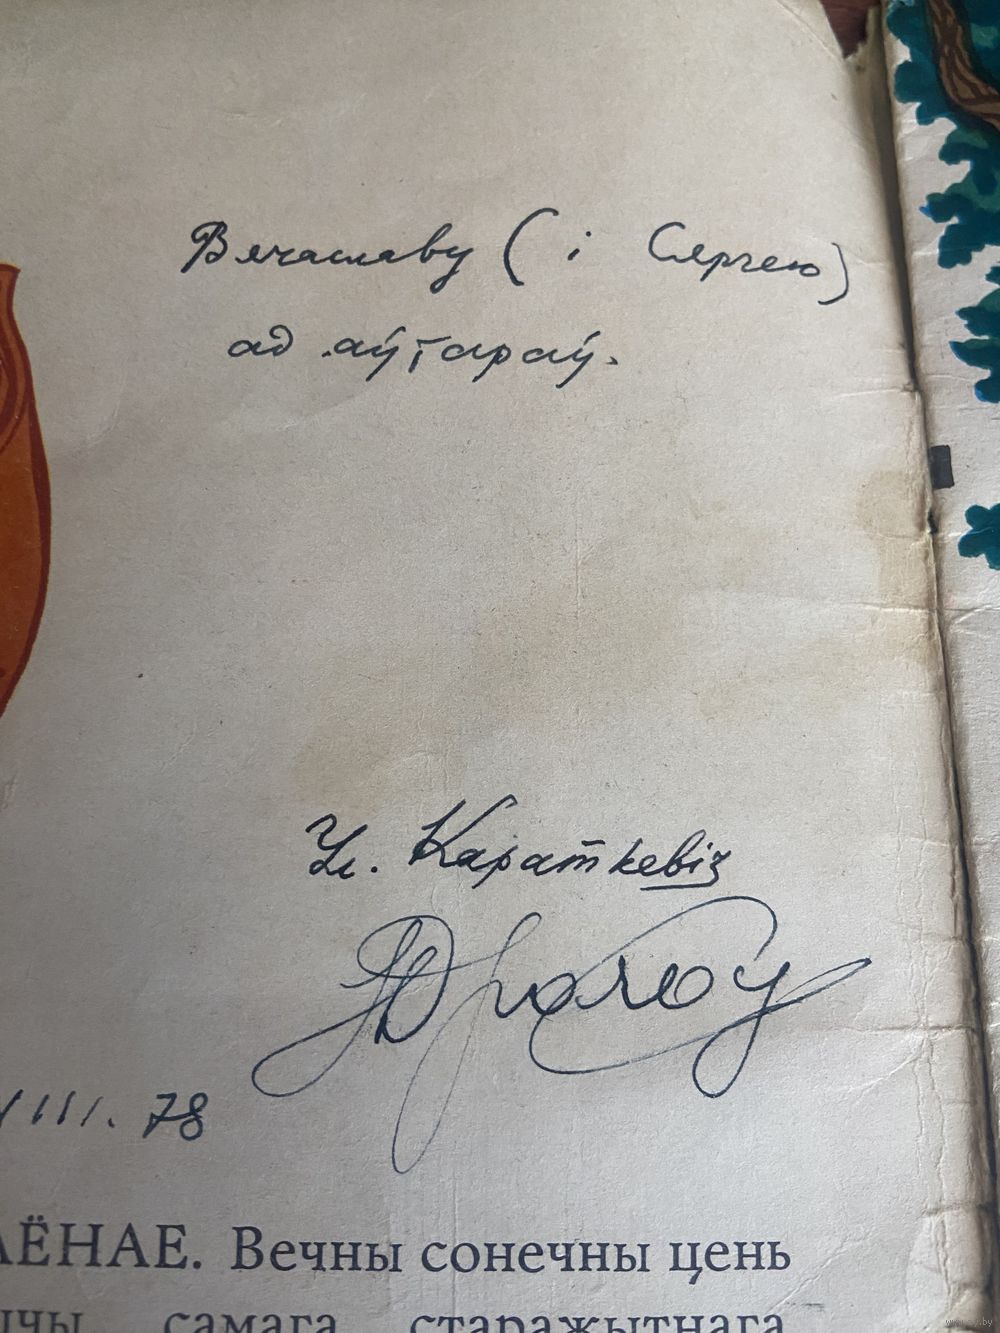 Вячаславу (і Сяргею)
ад аўтараў.
Ул. Караткевіч
III. 78
ЛЁНАЕ. Вечны сонечны цень
самага старажытнага